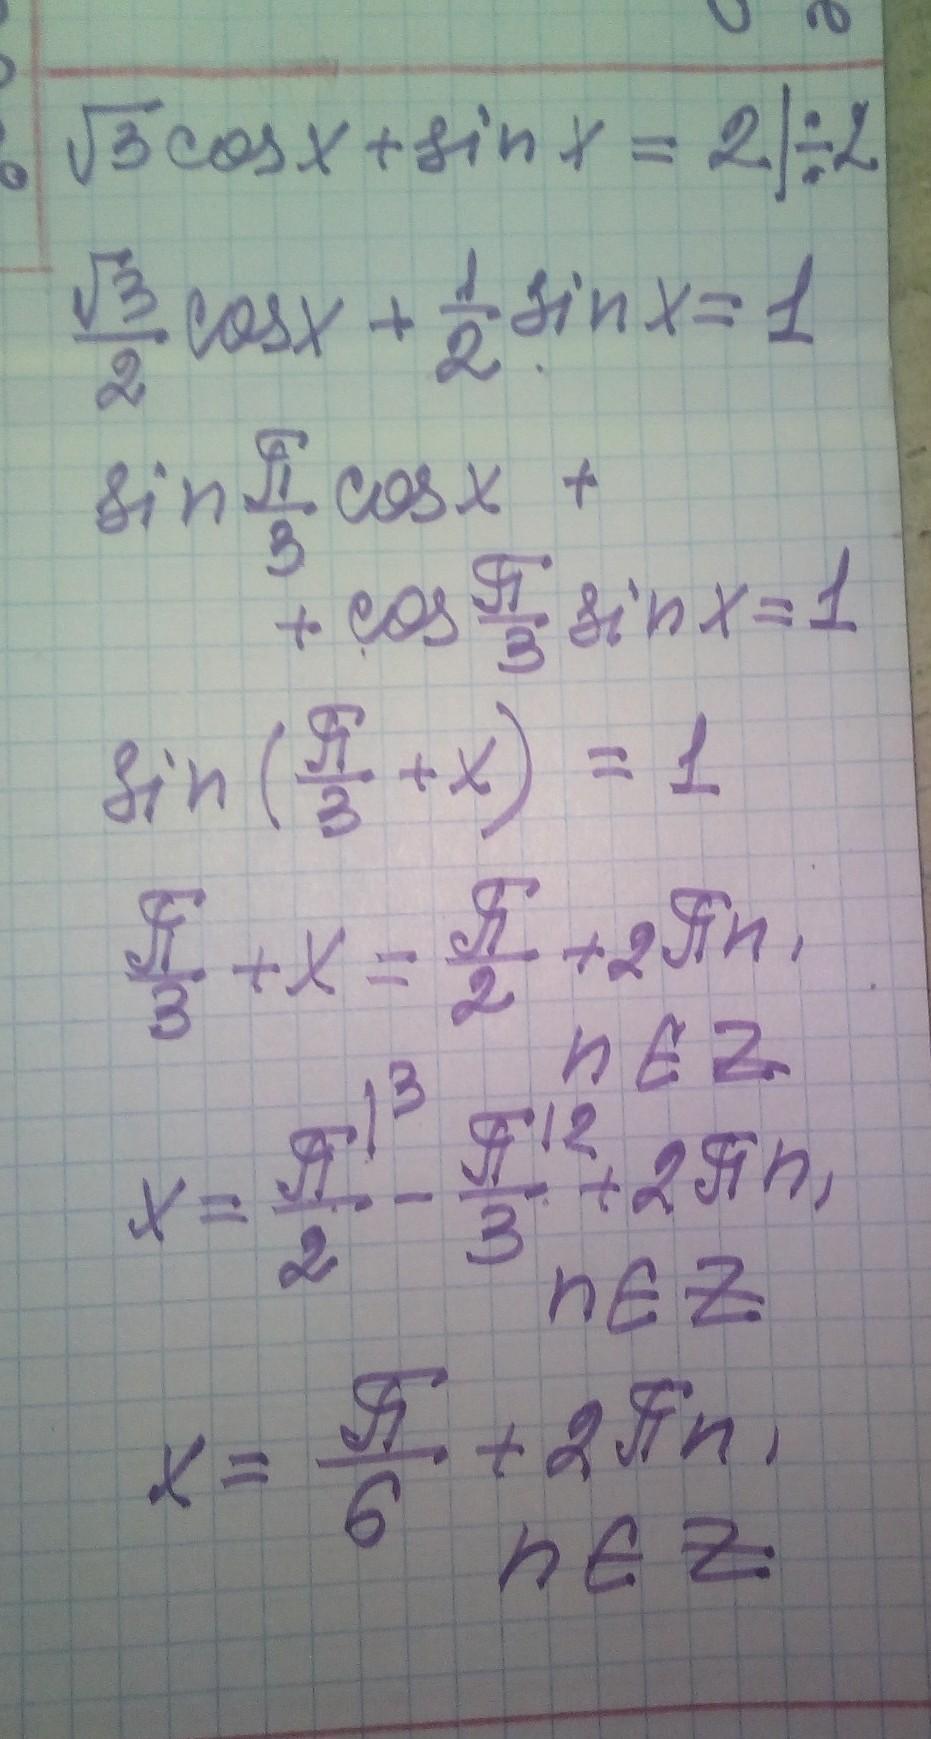 √3 cosx + sin x = 2 | ÷2
√3/2 cosx + 1/2 sin x = 1
sin π/3 cosx +
+ cos π/3 sin x = 1
sin (π/3 + x) = 1
π/3 + x = π/2 + 2πn,
n ∈ Z
x = π/2 |3 − π/3 |2 + 2πn,
n ∈ Z
x = π/6 + 2πn,
n ∈ Z